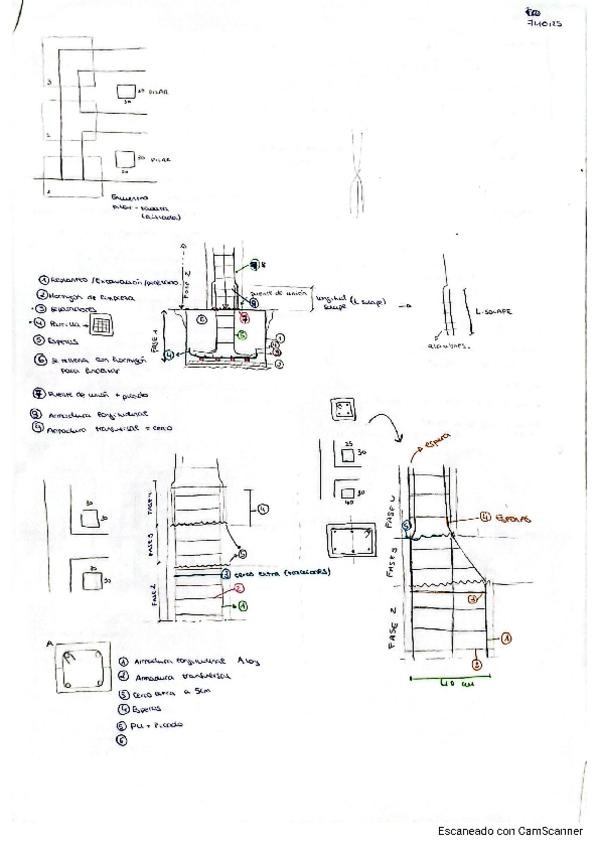 7/10/25
3
30 PILAR
30
2
30 PILAR
30
1
Encuentro
pilar - zapata
(aislada)
① Replanteo / Excavación /
② Hormigón de limpieza
③ Separadores
④ Parrilla
⑤ Esperas
⑥ Se rellena con hormigón
para
⑦ Puente de unión + picado
⑧ Armadura longitudinal
⑨ Armadura transversal = cerco
FASE 2
FASE 1
puente de unión
longitud
solape (L solape)
L-SOLAPE
alambres.
espera
25
30
30
40
30
30
30
30
FASE 4
FASE 3
FASE 2
④
⑤
③ cerco extra
②
①
FASE 4
FASE 3
FASE 2
④ Esperas
①
②
40 cm
A
① Armadura longitudinal
② Armadura transversal
③ Cerco extra a 5cm
④ Esperas
⑤ PU + Picado
⑥
Escaneado con CamScanner